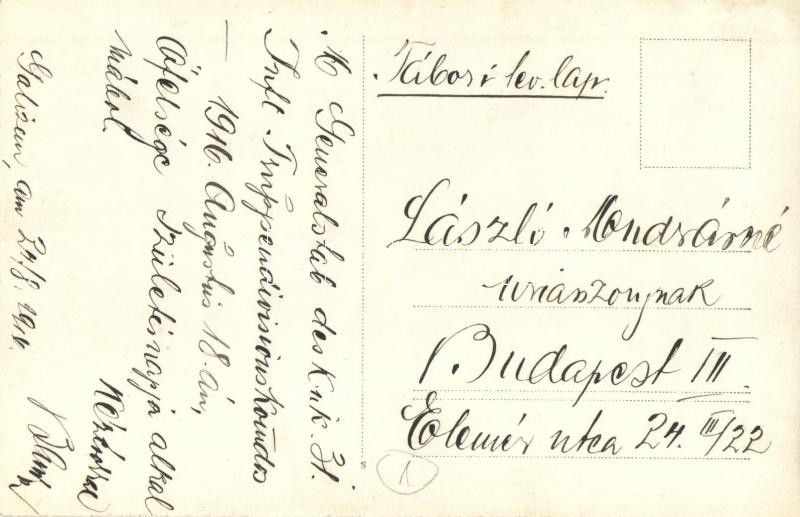 Tábori lev. lap.
László Mondrárné
uriaszonynak
Budapest III.
Elemér utca 24. III/22
1
A Generalstab des K.u.K. 31.
Inft Truppendivisionskomdos
— 1916. Augustus 18 án,
Őfelsége születésnapja alkal
mából.
Galizien, am 24/8. 1916.